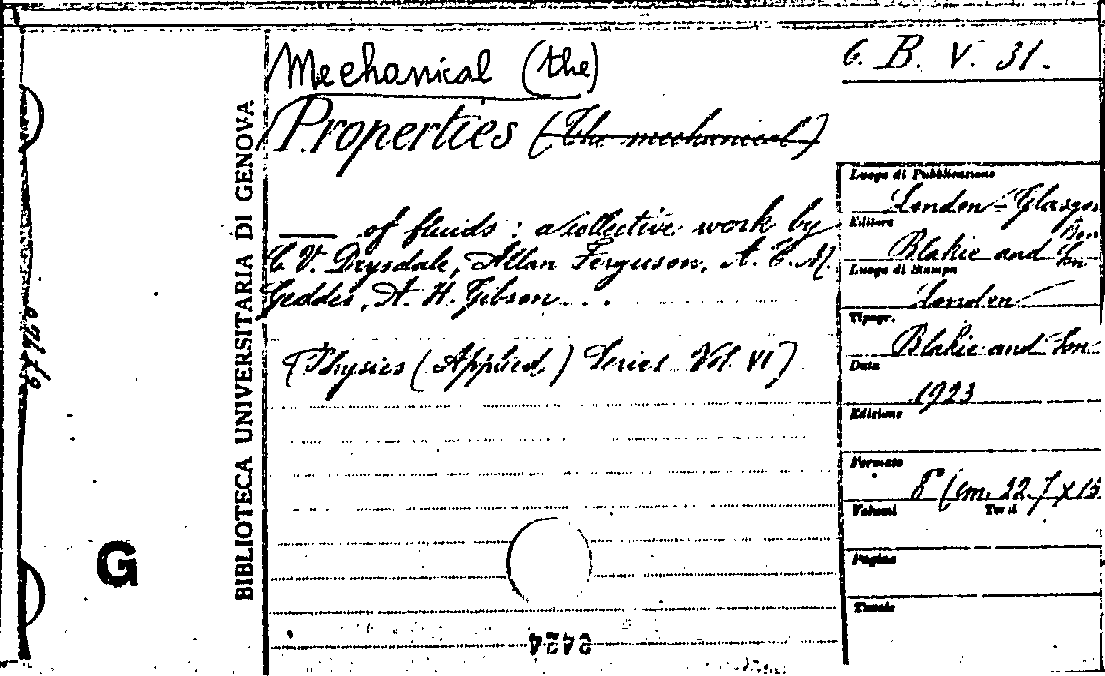 Mechanical (the)
Properties (The mechanical)
of fluids : a collective work by
C. V. Drysdale, Allan Ferguson, A. E. M.
Geddes, A. H. Gibson ...
(Physics (Applied) Series Vol. VI)
G. B. V. 31.
Luogo di Pubblicazione
London - Glasgow
Editore
Blakie and Son
Luogo di Stampa
London
Tipogr.
Blakie and Son
Data
1923
Edizione
Formato
8° (cm. 22.7 x 15
Volumi
Tav.
Pagine
BIBLIOTECA UNIVERSITARIA DI GENOVA
G